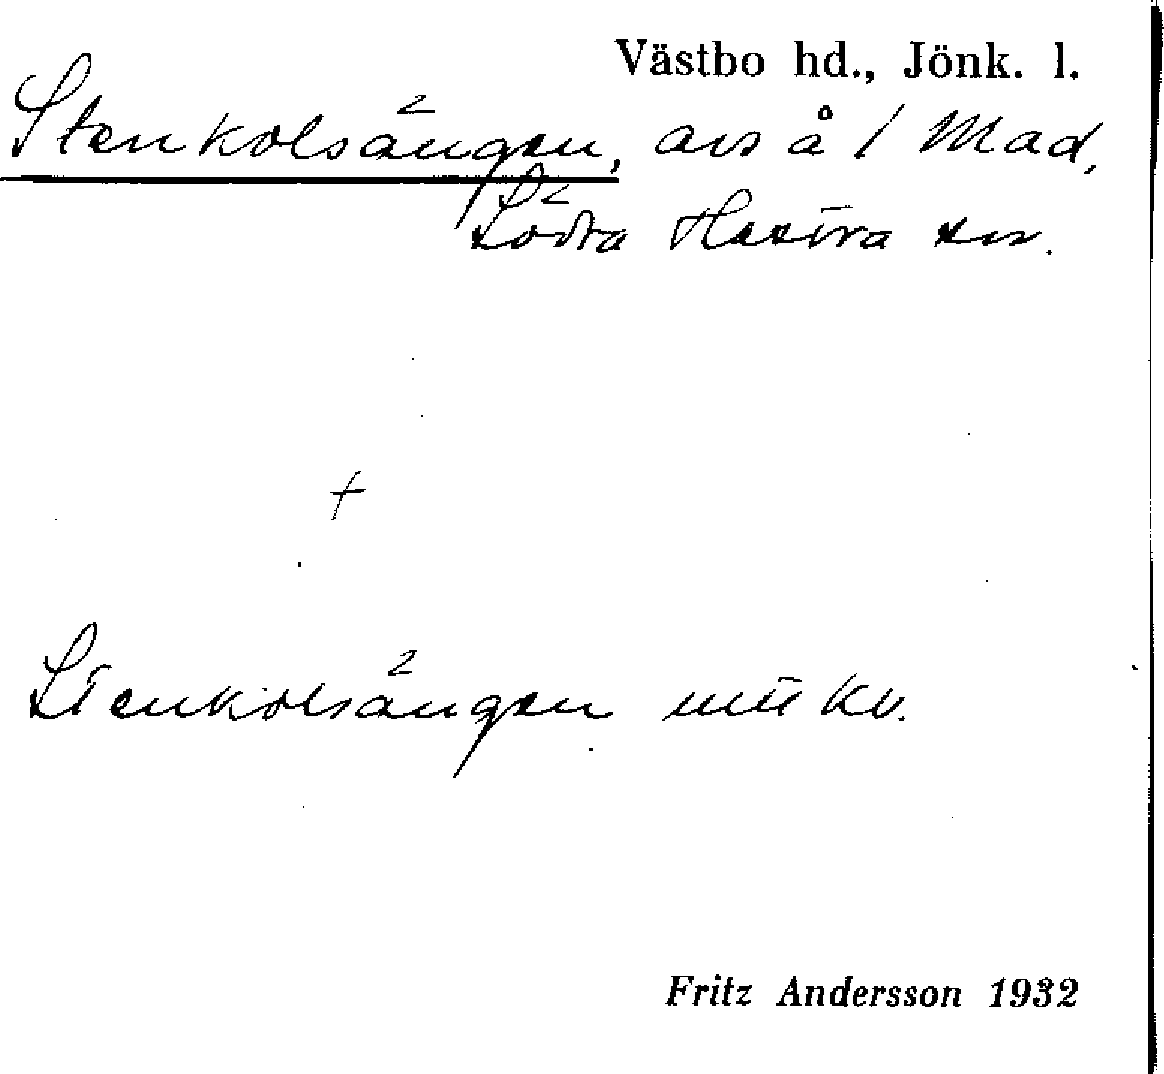 Västbo hd., Jönk. l.
Stenkolsängen, avs å 1 Mad,
Södra Hestra sn.
+
Stenkolsängen mtl kv.
Fritz Andersson 1932